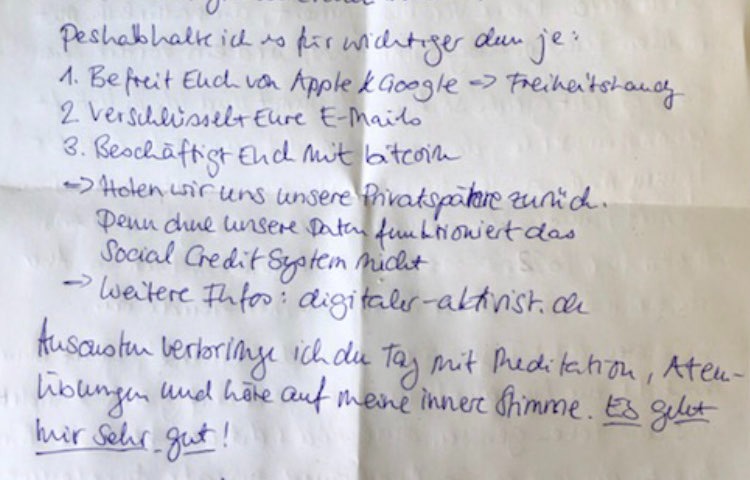 Deshalb halte ich es für wichtiger denn je:
1. Befreit Euch von Apple & Google -> Freiheitshandy
2. Verschlüsselt Eure E-Mails
3. Beschäftigt Euch mit bitcoin
-> Holen wir uns unsere Privatspäre zurück.
Denn ohne unsere Daten funktioniert das
Social Credit System nicht
-> Weitere Infos: digitaler-aktivist.ch
Ansonsten verbringe ich den Tag mit Meditation, Atem-
übungen und höre auf meine innere Stimme. Es geht
mir sehr gut!